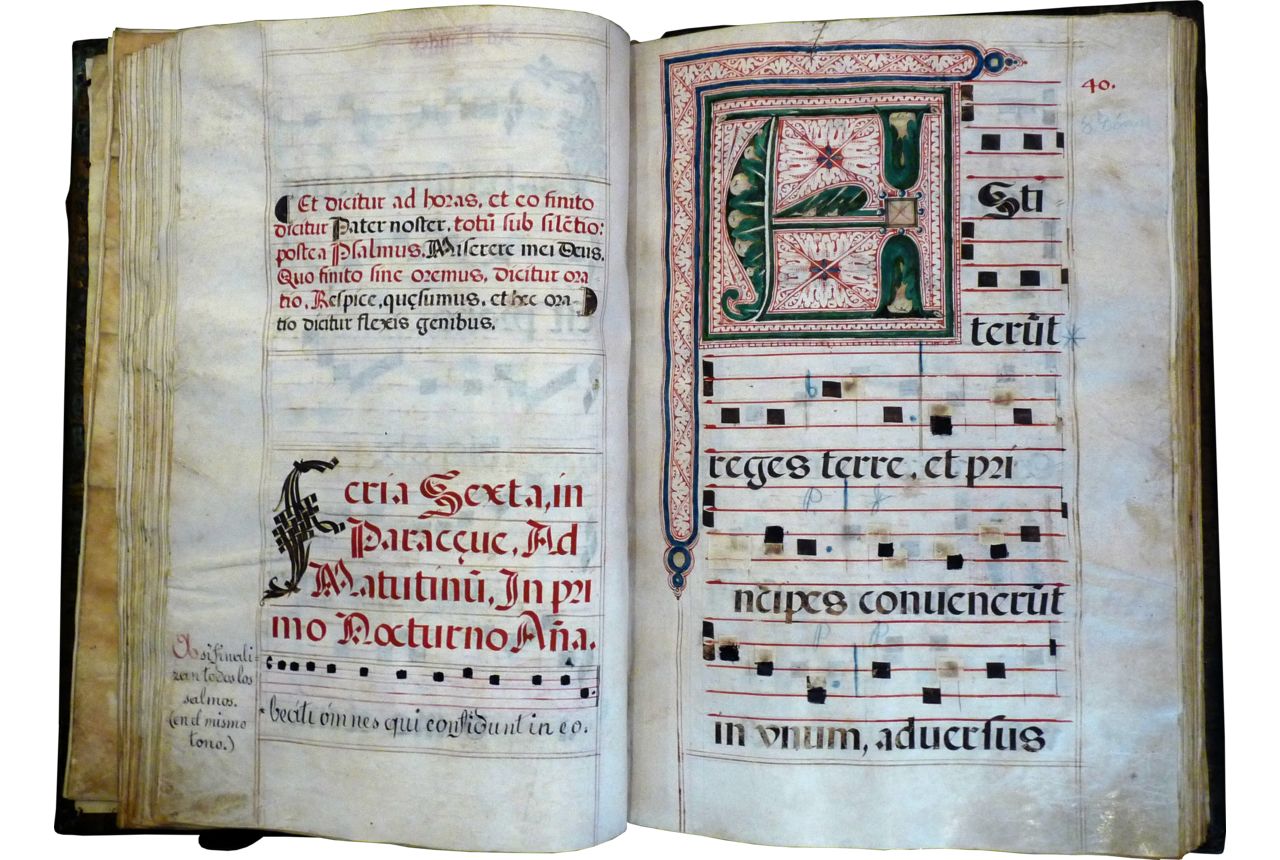 Et dicitur ad horas, et eo finito
dicitur Pater noster, totũ sub silẽtio:
postea Psalmus, Miserere mei Deus.
Quo finito sine oremus, dicitur ora
tio, Respice, quęsumus, et hec ora-
tio dicitur flexis genibus.
Feria Sexta, in
Paracęue, Ad
Matutinũ, In pri
mo Nocturno Aña.
Asi finali-
zan todos los
salmos.
(en el mismo
tono.)
beati omnes qui confidunt in eo.
40.
ASti
terũt *
reges terre, et pri
ncipes conuenerũt
in vnum, aduersus